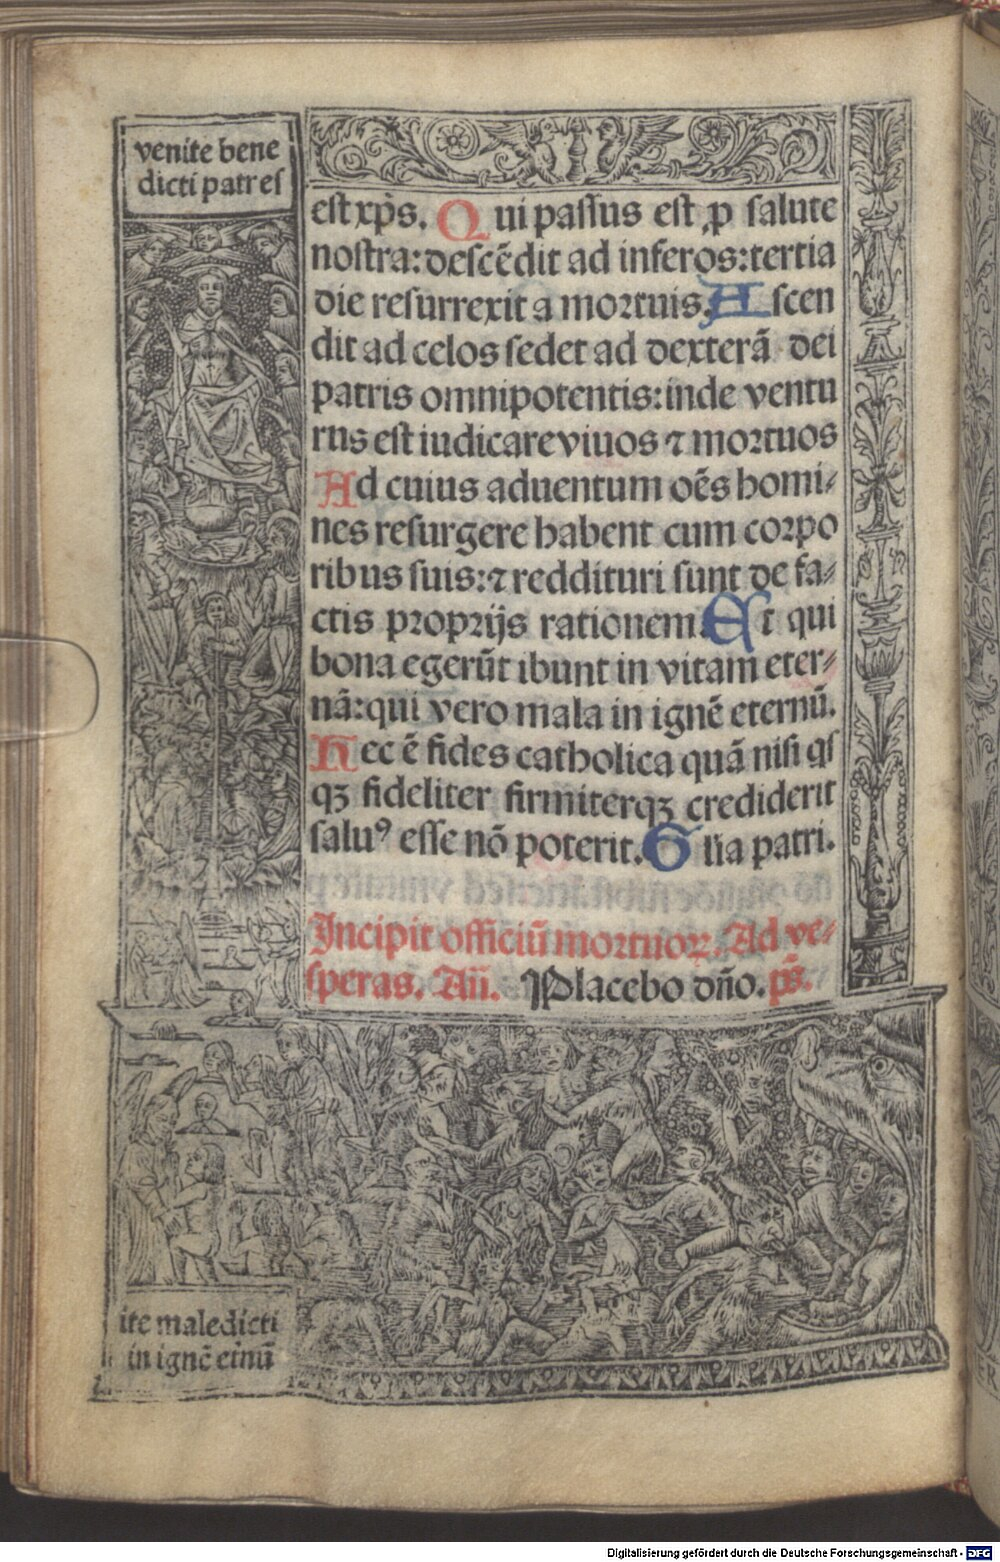 venite bene
dicti patres
est xp̄s. Qui passus est ꝓ salute
nostra: descēdit ad inferos: tertia
die resurrexit a mortuis. Ascen
dit ad celos sedet ad dexterā dei
patris omnipotentis: inde ventu
rus est iudicare viuos ⁊ mortuos
Ad cuius aduentum oēs homi⸗
nes resurgere habent cum corpo
ribus suis: ⁊ reddituri sunt de fa⸗
ctis proprijs rationem. Et qui
bona egerūt ibunt in vitam eter⸗
nā: qui vero mala in ignē eternū.
Hec ē fides catholica quā nisi qs
qꝫ fideliter firmiterqꝫ crediderit
saluꝰ esse nō poterit. Glia patri.
Incipit officiū mortuoꝝ. Ad ve⸗
speras. Añ. Placebo dño. ps̄.
ite maledicti
in ignē etnū
Digitalisierung gefördert durch die Deutsche Forschungsgemeinschaft - DFG